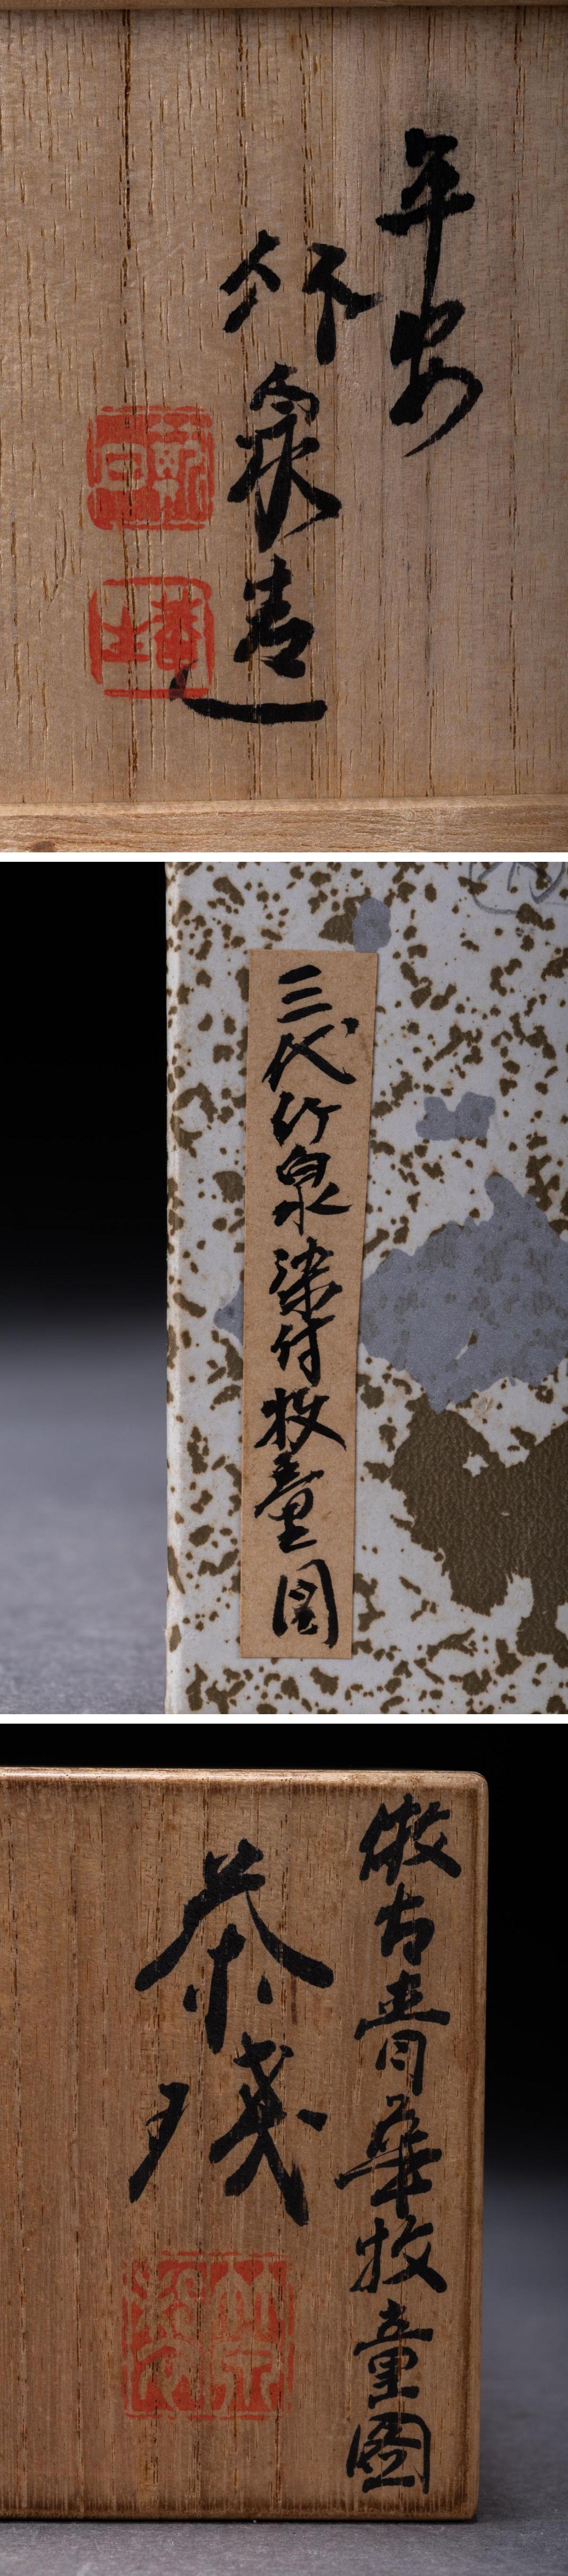 平安
竹泉造
三代竹泉染付牧童図
倣古青華牧童圖
茶琖